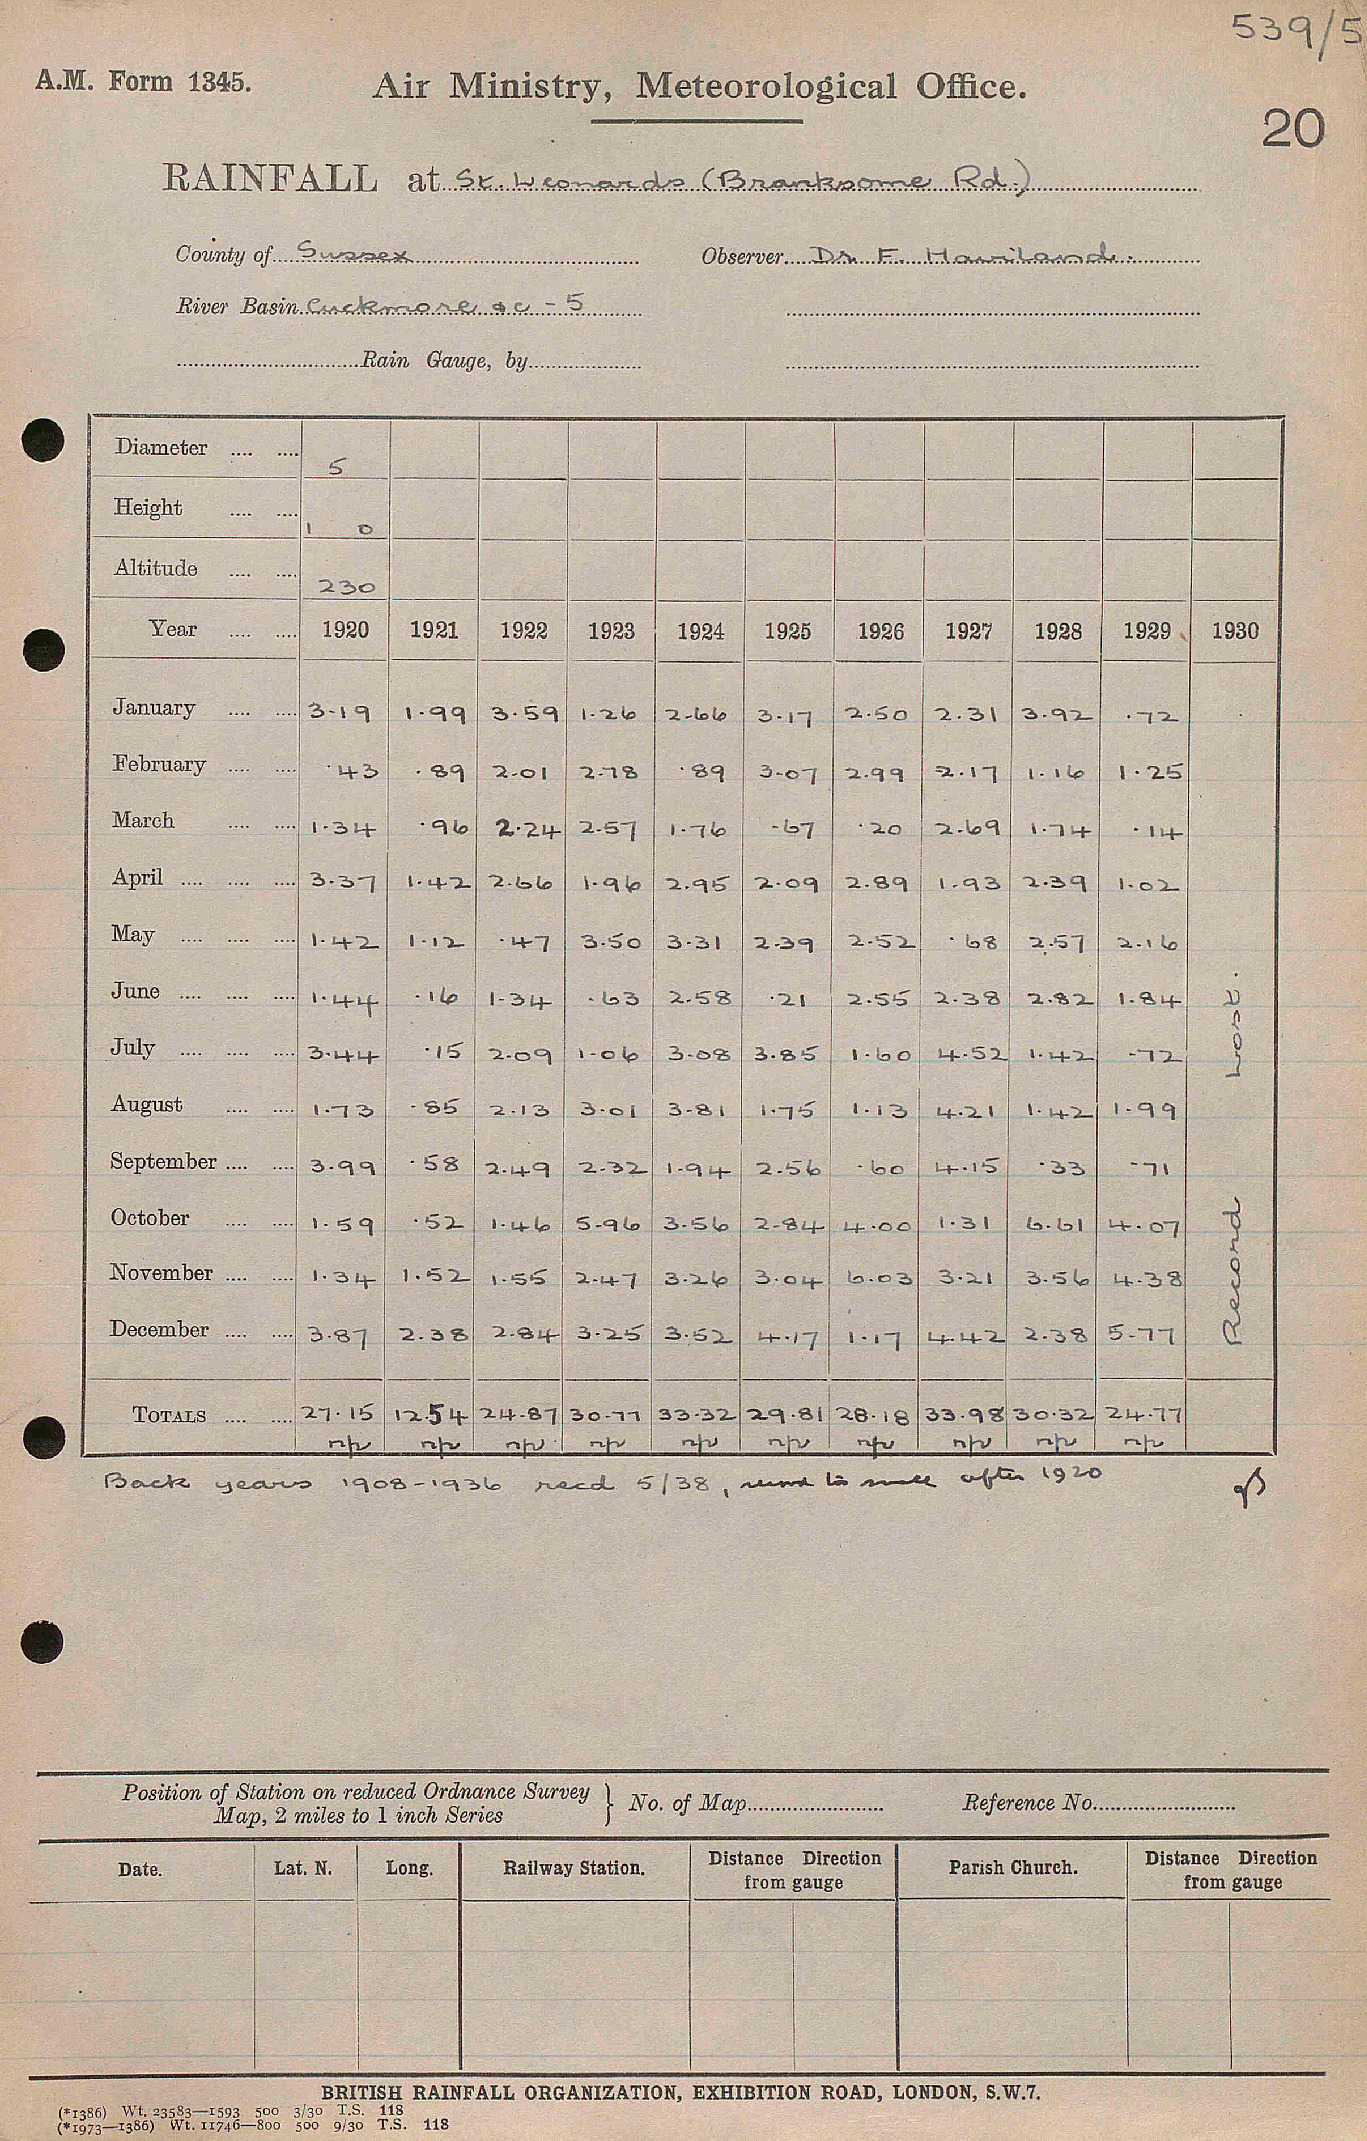 539/5
A.M. Form 1345. Air Ministry, Meteorological Office.
20
RAINFALL at St. Leonards (Branksome Rd.)
County of Sussex Observer Dr F. Haviland.
River Basin Cuckmere &c - 5
Rain Gauge, by
Diameter 5
Height 1 0
Altitude 230
Year 1920 1921 1922 1923 1924 1925 1926 1927 1928 1929 1930
January 3.19 1.99 3.59 1.26 2.66 3.17 2.50 2.31 3.92 .72
February .43 .89 2.01 2.78 .89 3.07 2.99 2.17 1.16 1.25
March 1.34 .96 2.24 2.57 1.76 .67 .20 2.69 1.74 .14
April 3.37 1.42 2.66 1.96 2.95 2.09 2.89 1.93 2.39 1.02
May 1.42 1.12 .47 3.50 3.31 2.39 2.52 .68 2.57 2.16
June 1.44 .16 1.34 .63 2.58 .21 2.55 2.38 2.82 1.84
July 3.44 .15 2.09 1.06 3.08 3.85 1.60 4.52 1.42 .72
August 1.73 .85 2.13 3.01 3.81 1.75 1.13 4.21 1.42 1.99
September 3.99 .58 2.49 2.32 1.94 2.56 .60 4.15 .33 .71
October 1.59 .52 1.46 5.96 3.56 2.84 4.00 1.31 6.61 4.07
November 1.34 1.52 1.55 2.47 3.26 3.04 6.03 3.21 3.56 4.38
December 3.87 2.38 2.84 3.25 3.52 4.17 1.17 4.42 2.38 5.77
Record Lost.
TOTALS 27.15 12.54 24.87 30.77 33.32 29.81 28.18 33.98 30.32 24.77
Back years 1908-1936 recd 5/38, after 1920
Position of Station on reduced Ordnance Survey
Map, 2 miles to 1 inch Series } No. of Map Reference No.
Date. Lat. N. Long. Railway Station. Distance Direction from gauge Parish Church. Distance Direction from gauge
BRITISH RAINFALL ORGANIZATION, EXHIBITION ROAD, LONDON, S.W.7.
(*1386) Wt. 23583—1593 500 3/30 T.S. 118
(*1973—1386) Wt. 11746—800 500 9/30 T.S. 118